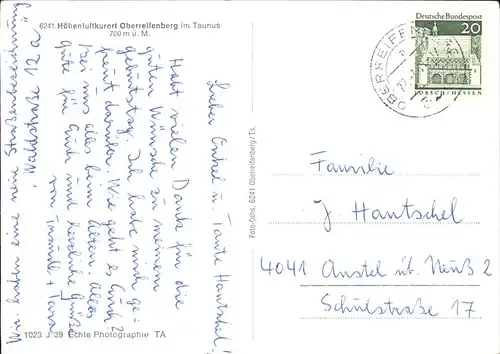 6241 Höhenluftkurort Oberreifenberg im Taunus
700 m ü. M.
Lieber Onkel u. Tante Hantschel!
Habt vielen Dank für die
guten Wünsche zu meinem
Geburtstag. Ich habe mich ge-
freut darüber. Wie geht es Euch?
Bei uns alles beim Alten. Alles
Gute für Euch und herzliche Grüße
von Traudl +
Wir haben eine neue Straßenbezeichnung
"Waldstraße 12 a"
1023 J 39 Echte Photographie TA
Foto-Dells, 6241 Oberreifenberg/Ts.
Deutsche Bundespost
20
LORSCH/HESSEN
OBERREIFEN
Familie
J. Hantschel
4041 Anstel üb. Neuß 2
Schulstraße 17